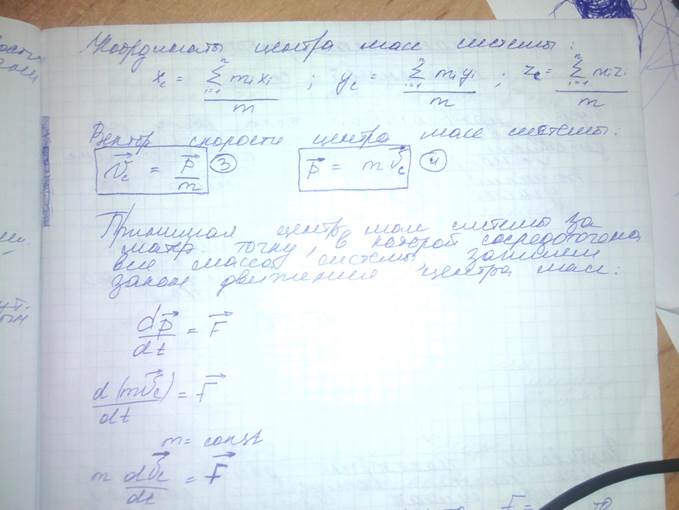 Координаты центра масс системы:
x_c = Σ_{i=1}^{n} m_i x_i / m ; y_c = Σ_{i=1}^{n} m_i y_i / m ; z_c = Σ_{i=1}^{n} m_i z_i / m
Вектор скорости центра масс системы.
v⃗_c = p⃗ / m (3) p⃗ = m v⃗_c (4)
Принимая центр масс системы за
матер. точку, в которой сосредоточена
вся масса системы запишем
закон движения центра масс:
dp⃗ / dt = F⃗
d(m v⃗_c) / dt = F⃗
m = const
m dv⃗_c / dt = F⃗